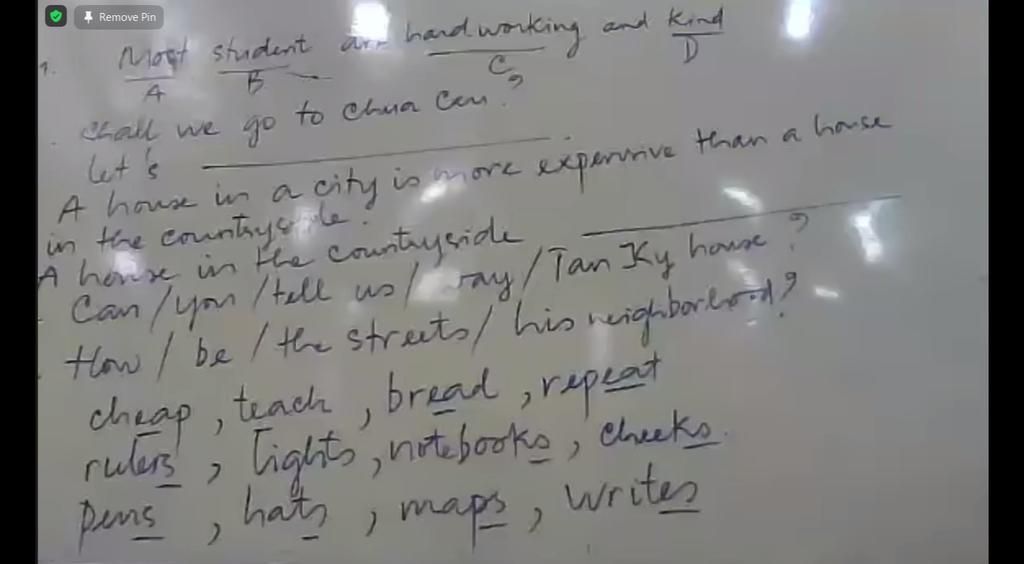 Remove Pin
1. Most student are hardworking and kind
A B C D
Shall we go to Chua Cau?
Let's ____________.
A house in a city is more expensive than a house
in the countryside.
A house in the countryside ____________
Can / you / tell us / way / Tan Ky house?
How / be / the streets / his neighborhood?
cheap, teach, bread, repeat
rulers, lights, notebooks, cheeks.
pens, hats, maps, writes